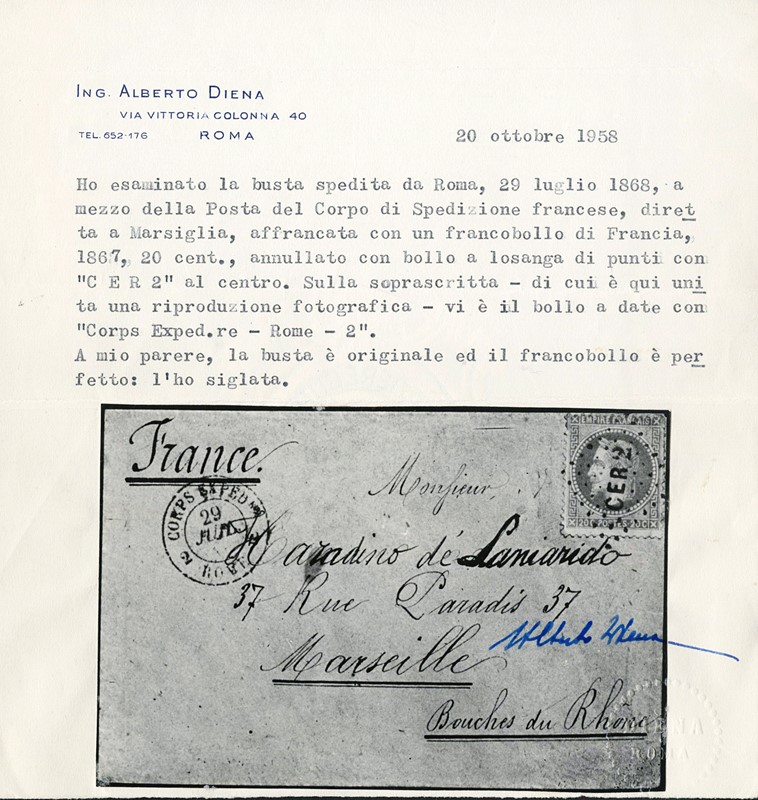 ING. ALBERTO DIENA
VIA VITTORIA COLONNA 40
TEL. 652-176 ROMA
20 ottobre 1958
Ho esaminato la busta spedita da Roma, 29 luglio 1868, a
mezzo della Posta del Corpo di Spedizione francese, diret
ta a Marsiglia, affrancata con un francobollo di Francia,
1867, 20 cent., annullato con bollo a losanga di punti con
"C E R 2" al centro. Sulla soprascritta - di cui è qui uni
ta una riproduzione fotografica - vi è il bollo a date con
"Corps Exped.re - Rome - 2".
A mio parere, la busta è originale ed il francobollo è per
fetto: l'ho siglata.
EMPIRE FRANÇAIS
CER 2
20 C POSTES 20 C
France.
Monsieur
CORPS EXPED
29
JUIL
2 ROME
de Laniarido
37 Rue Paradis 37
Alberto Diena
Marseille
Bouches du Rhône
ROMA